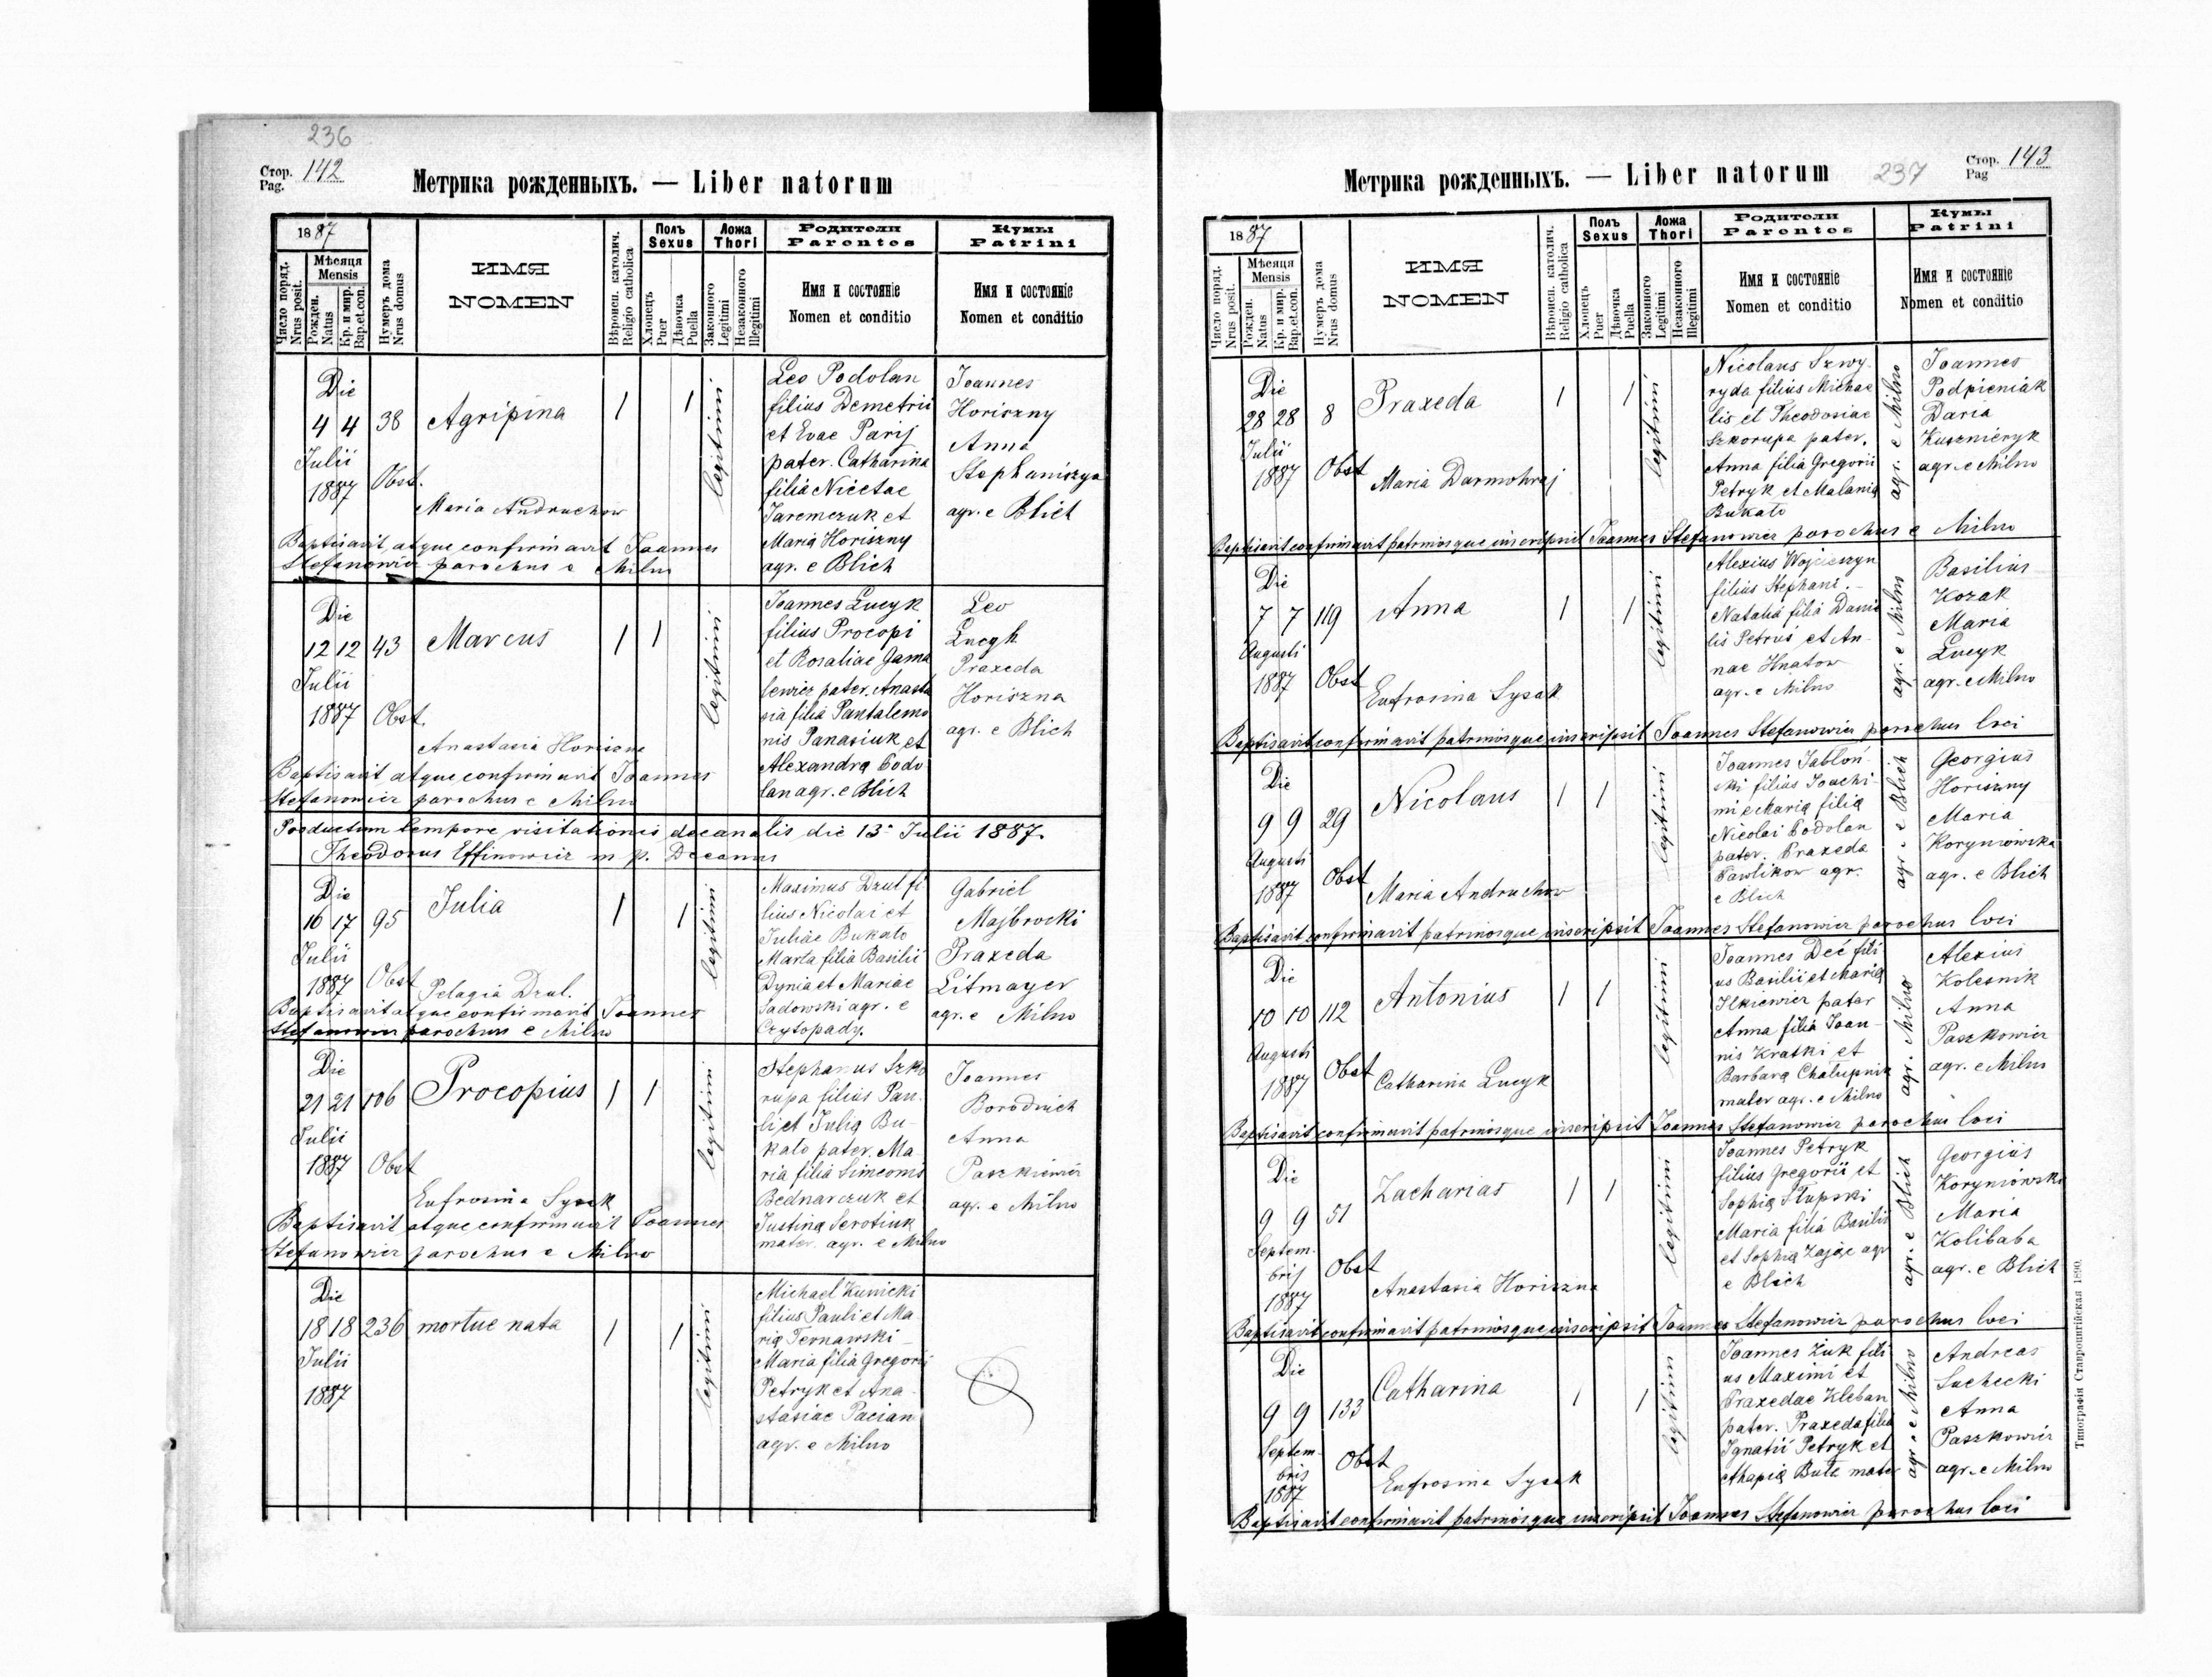 236
Стор. 142
Pag.
Метрика рожденныхъ. — Liber natorum
1887
Число поряд.
Nrus posit.
Мѣсяця
Mensis
Рожден.
Natus
Кр. и мир.
Bap.et.con.
Нумеръ дома
Nrus domus
ИМЯ
NOMEN
Вѣроисп. католич.
Religio catholica
Полъ
Sexus
Хлопецъ
Puer
Дѣвочка
Puella
Ложа
Thori
Законного
Legitimi
Незаконного
Illegitimi
Родители
Parentes
Имя и состояніе
Nomen et conditio
Кумы
Patrini
Имя и состояніе
Nomen et conditio
Die
4 4 38 Agripina 1 1
Julii
1887 Obst.
Maria Andruchow
legitimi
Leo Podolan
filius Demetrii
et Evae Parij
pater. Catharina
filia Nicetae
Jaremczuk et
Maria Horiszny
agr. e Blich
Joannes
Horiszny
Anna
Stephaniszyn
agr. e Blich
Baptisavit atque confirmavit Joannes
Stefanowicz parochus e Milno
Die
12 12 43 Marcus 1 1
Julii
1887 Obst.
Anastasia Horiszna
legitimi
Joannes Lucyk
filius Procopi
et Rosaliae Gama
lewicz pater. Anasta
sia filia Pantalemo
nis Panasiuk et
Alexandra Podo
lan agr. e Blich
Leo
Lucyk
Praxeda
Horiszna
agr. e Blich
Baptisavit atque confirmavit Joannes
Stefanowicz parochus e Milno
Productum tempore visitationis decanalis die 13 Julii 1887.
Theodorus Effinowicz m. p. Decanus
Die
16 17 95 Julia 1 1
Julii
1887 Obst Pelagia Dzul.
legitimi
Maximus Dzul fi
lius Nicolai et
Juliae Bukato
Marta filia Basilii
Dynia et Mariae
Sadowski agr. e
Czytopady.
Gabriel
Majbrocki
Praxeda
Litmayer
agr. e Milno
Baptisavit atque confirmavit Joannes
Stefanowicz parochus e Milno
Die
21 21 106 Procopius 1 1
Julii
1887 Obst
Eufrosina Sysak
legitimi
Stephanus Szko
rupa filius Pau
li et Julia Bu-
kato pater. Ma
ria filia Simeonis
Bednarczuk et
Justina Serotiuk
mater. agr. e Milno
Joannes
Borodnich
Anna
Paszkiewicz
agr. e Milno
Baptisavit atque confirmavit Joannes
Stefanowicz parochus e Milno
Die
18 18 236 mortue nata 1 1
Julii
1887
legitimi
Michael Kunicki
filius Pauli et Ma
ria Ternawski
Maria filia Gregorii
Petryk et Ana-
stasiae Pacian
agr. e Milno
Метрика рожденныхъ. — Liber natorum
237
Стор. 143
Pag
1887
Число поряд.
Nrus posit.
Мѣсяця
Mensis
Рожден.
Natus
Кр. и мир.
Bap.et.con.
Нумеръ дома
Nrus domus
ИМЯ
NOMEN
Вѣроисп. католич.
Religio catholica
Полъ
Sexus
Хлопецъ
Puer
Дѣвочка
Puella
Ложа
Thori
Законного
Legitimi
Незаконного
Illegitimi
Родители
Parentes
Имя и состояніе
Nomen et conditio
Кумы
Patrini
Имя и состояніе
Nomen et conditio
Die
28 28 8 Praxeda 1 1
Julii
1887 Obst Maria Darmohraj
legitimi
Nicolaus Szwy-
ryda filius Michae
lis et Theodosiae
Szkorupa pater.
Anna filia Gregorii
Petryk et Malania
Bukato
agr. e Milno
Joannes
Podpieniak
Daria
Kusznieryk
agr. e Milno
Baptisavit confirmavit patrinosque inscripsit Joannes Stefanowicz parochus e Milno
Die
7 7 119 Anna 1 1
Augusti
1887 Obst Eufrosina Sysak
legitimi
Alexius Wojciszyn
filius Stephani.
Natalia filia Danie
lis Petrus et An-
nae Hnatow
agr. e Milno
agr. e Milno
Basilius
Kozak
Maria
Lucyk
agr. e Milno
Baptisavit confirmavit patrinosque inscripsit Joannes Stefanowicz parochus loci
Die
9 9 29 Nicolaus 1 1
Augusti
1887 Obst Maria Andruchow
legitimi
Joannes Jabłoń-
ski filius Joachi-
mi e Maria filia
Nicolai Podolan
pater. Praxeda
Pawlikow agr.
e Blich
agr. e Blich
Georgius
Horiszny
Maria
Koryniowska
agr. e Blich
Baptisavit confirmavit patrinosque inscripsit Joannes Stefanowicz parochus loci
Die
10 10 112 Antonius 1 1
Augusti
1887 Obst Catharina Lucyk
legitimi
Joannes Deć fili
us Basilii et Maria
Ilkiewicz pater
Anna filia Joan-
nis Kratki et
Barbara Chalupnik
mater agr. e Milno
agr. Milno
Alexius
Kolesnik
Anna
Paszkowicz
agr. e Milno
Baptisavit confirmavit patrinosque inscripsit Joannes Stefanowicz parochus loci
Die
9 9 51 Zacharias 1 1
Septem-
bris
1887
Obst
Anastasia Horiszna
legitimi
Joannes Petryk
filius Gregorii et
Sophia Słupski
Maria filia Basilii
et Sophia Zając agr
e Blich
agr. e Blich
Georgius
Koryniowski
Maria
Kolibaba
agr. e Blich
Baptisavit confirmavit patrinosque inscripsit Joannes Stefanowicz parochus loci
Die
9 9 133 Catharina 1 1
Septem-
bris
1887
Obst
Eufrosina Sysak
legitimi
Joannes Zuk fili
us Maximi et
Praxedae Kleban
pater. Praxeda filia
Ignatii Petryk et
Ahapia Buta mater
agr. e Milno
Andreas
Suchecki
Anna
Paszkowicz
agr. e Milno
Baptisavit confirmavit patrinosque inscripsit Joannes Stefanowicz parochus loci
Типографія Ставропигійская 1890.